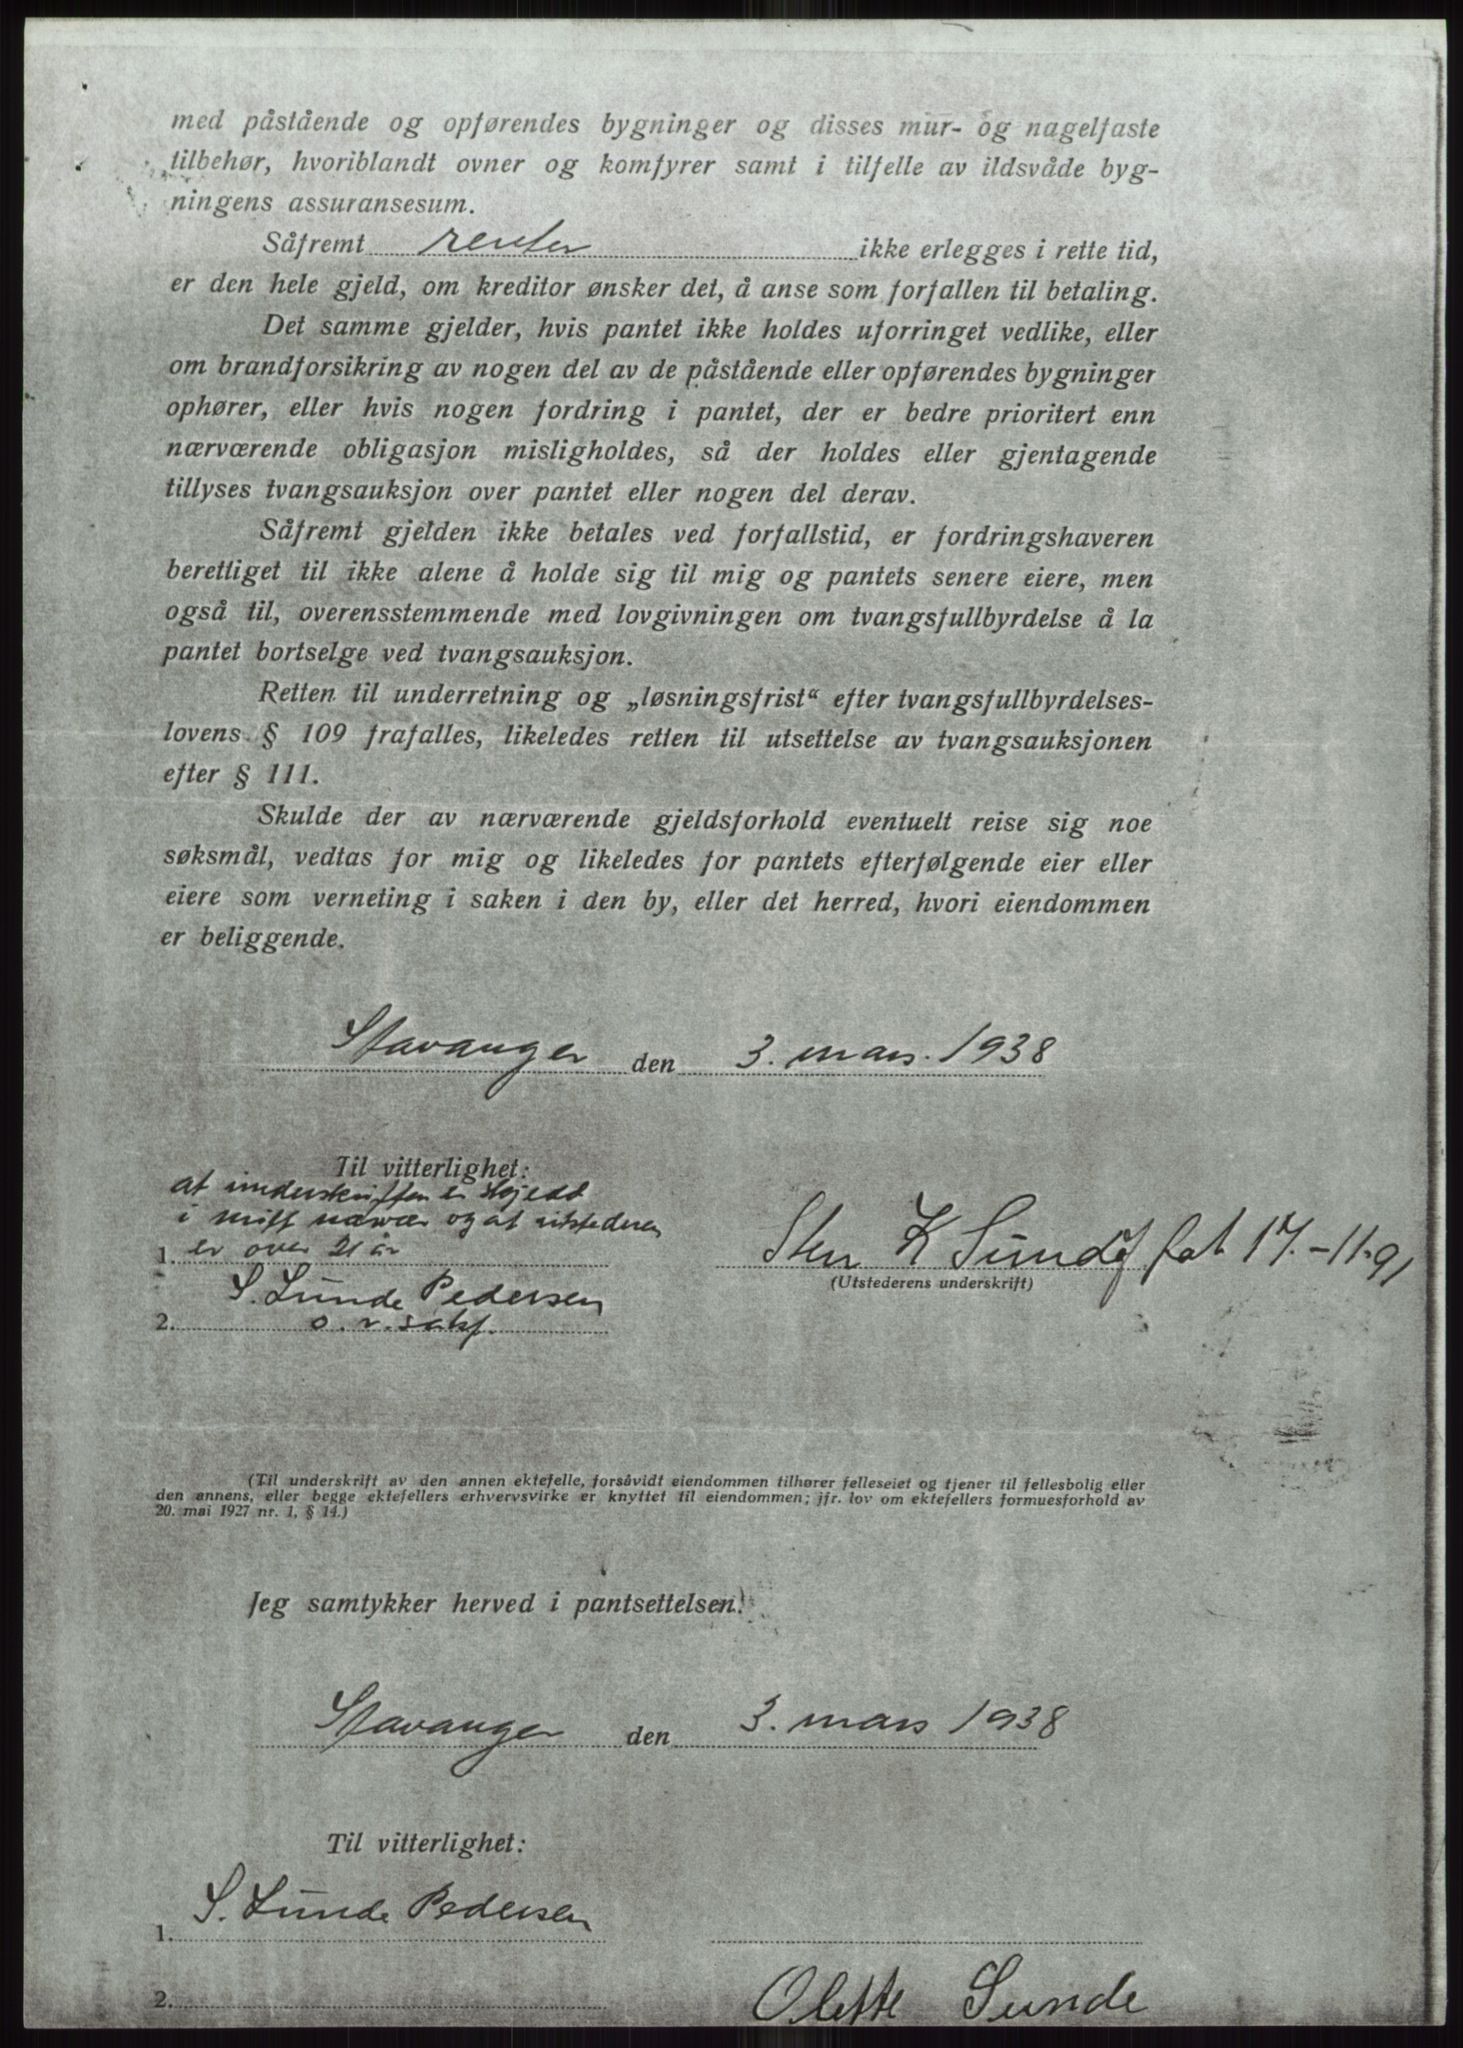 med påstående og opførendes bygninger og disses mur- og nagelfaste
tilbehør, hvoriblandt ovner og komfyrer samt i tilfelle av ildsvåde byg-
ningens assuransesum.
Såfremt renter ikke erlegges i rette tid,
er den hele gjeld, om kreditor ønsker det, å anse som forfallen til betaling.
Det samme gjelder, hvis pantet ikke holdes uforringet vedlike, eller
om brandforsikring av nogen del av de påstående eller opførendes bygninger
ophører, eller hvis nogen fordring i pantet, der er bedre prioritert enn
nærværende obligasjon misligholdes, så der holdes eller gjentagende
tillyses tvangsauksjon over pantet eller nogen del derav.
Såfremt gjelden ikke betales ved forfallstid, er fordringshaveren
berettiget til ikke alene å holde sig til mig og pantets senere eiere, men
også til, overensstemmende med lovgivningen om tvangsfullbyrdelse å la
pantet bortselge ved tvangsauksjon.
Retten til underretning og „løsningsfrist“ efter tvangsfullbyrdelses-
lovens § 109 frafalles, likeledes retten til utsettelse av tvangsauksjonen
efter § 111.
Skulde der av nærværende gjeldsforhold eventuelt reise sig noe
søksmål, vedtas for mig og likeledes for pantets efterfølgende eier eller
eiere som verneting i saken i den by, eller det herred, hvori eiendommen
er beliggende.
Stavanger den 3. mars. 1938
Til vitterlighet:
at underskriften er skjedd
i mitt nærvær og at utstederen
1. er over 21 år
S. Lunde Pedersen
2. o.r.sakf.
Sten K Sunde fat 17.-11.91
(Utstederens underskrift)
(Til underskrift av den annen ektefelle, forsåvidt eiendommen tilhører felleseiet og tjener til fellesbolig eller
den annens, eller begge ektefellers erhvervsvirke er knyttet til eiendommen; jfr. lov om ektefellers formuesforhold av
20. mai 1927 nr. 1, § 14.)
Jeg samtykker herved i pantsettelsen.
Stavanger den 3. mars 1938
Til vitterlighet:
1. S. Lunde Pedersen
2.
Olette Sunde